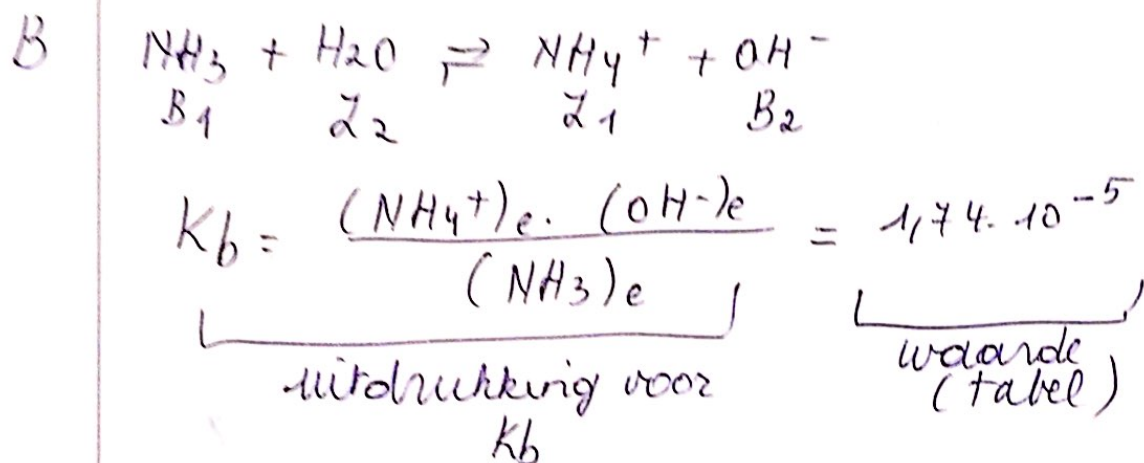 B NH3 + H2O ⇌ NH4+ + OH-
B1 Z2 Z1 B2
Kb = (NH4+)e . (OH-)e / (NH3)e = 1,74. 10-5
uitdrukking voor Kb
waarde (tabel)